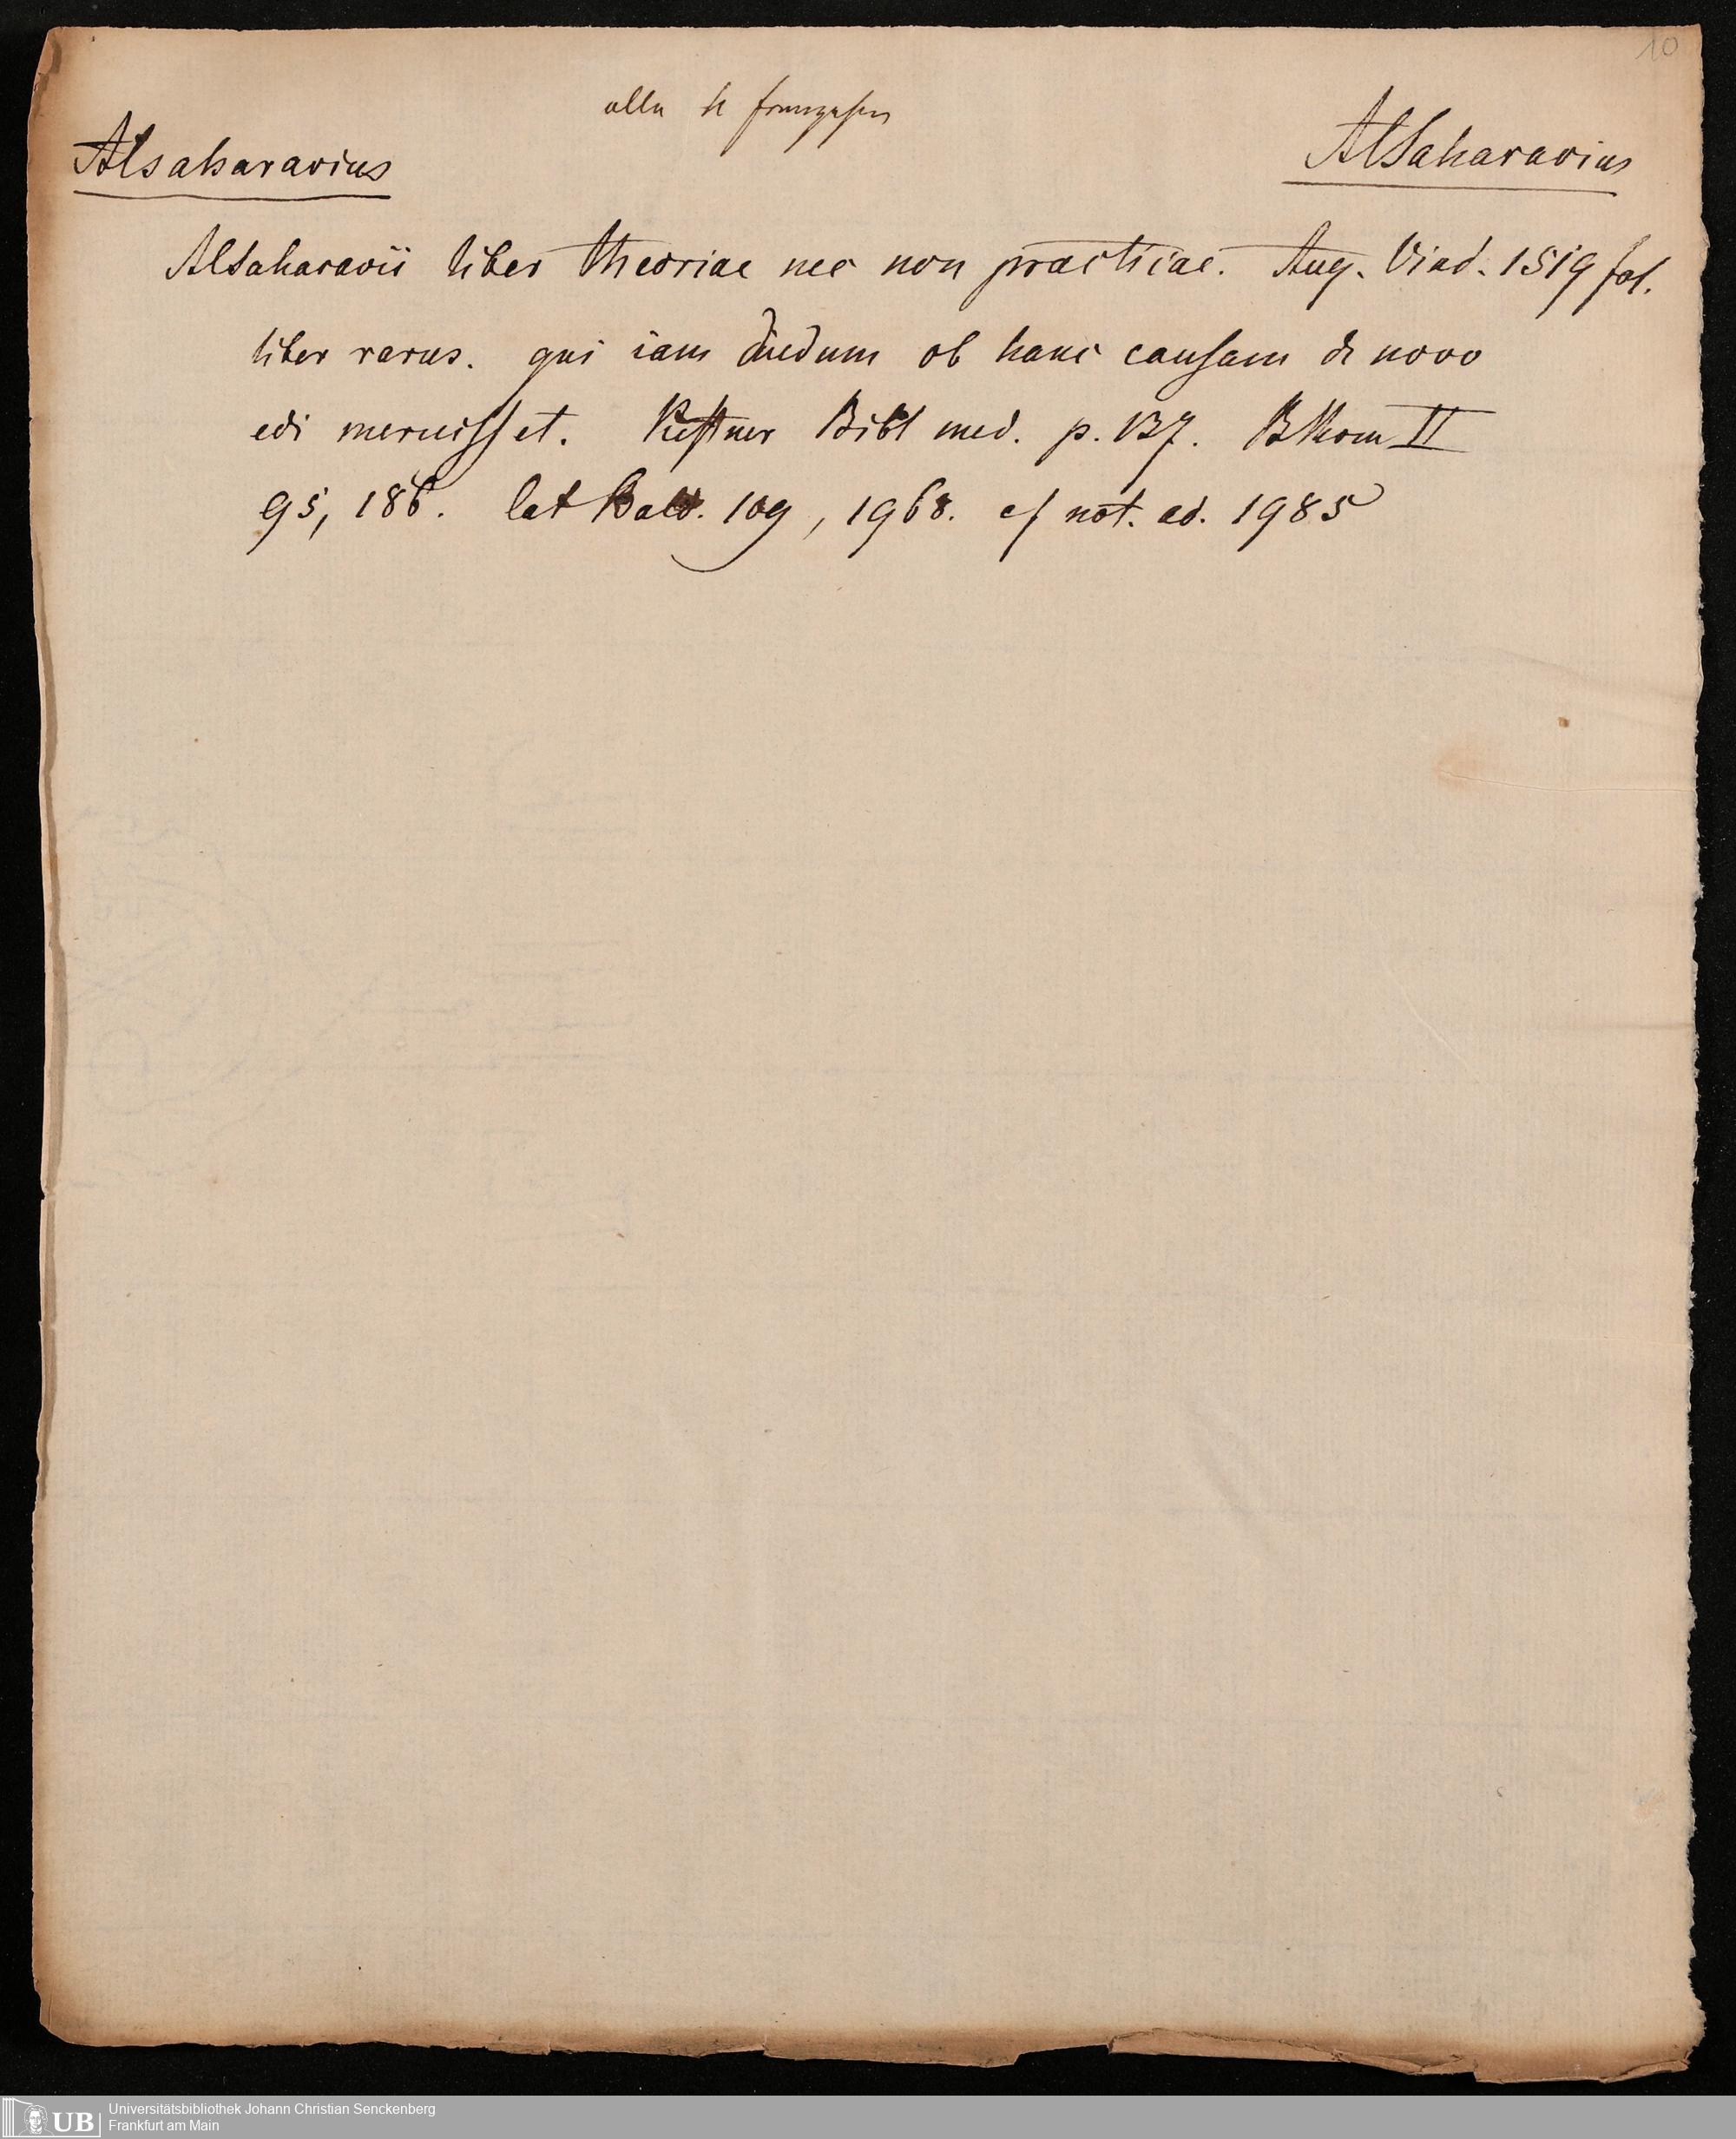 10
Alsaharavius
Alsaharavius
Alsaharavii liber theoriae nec non practicae. Aug. Vind. 1519 fol.
liber rarus. qui iam dudum ob hanc causam de novo
edi meruisset. Kestner Bibl med. p. 137. II
95, 186. lat Bald. 109, 1968. cf not. ad. 1985
Universitätsbibliothek Johann Christian Senckenberg
UB Frankfurt am Main